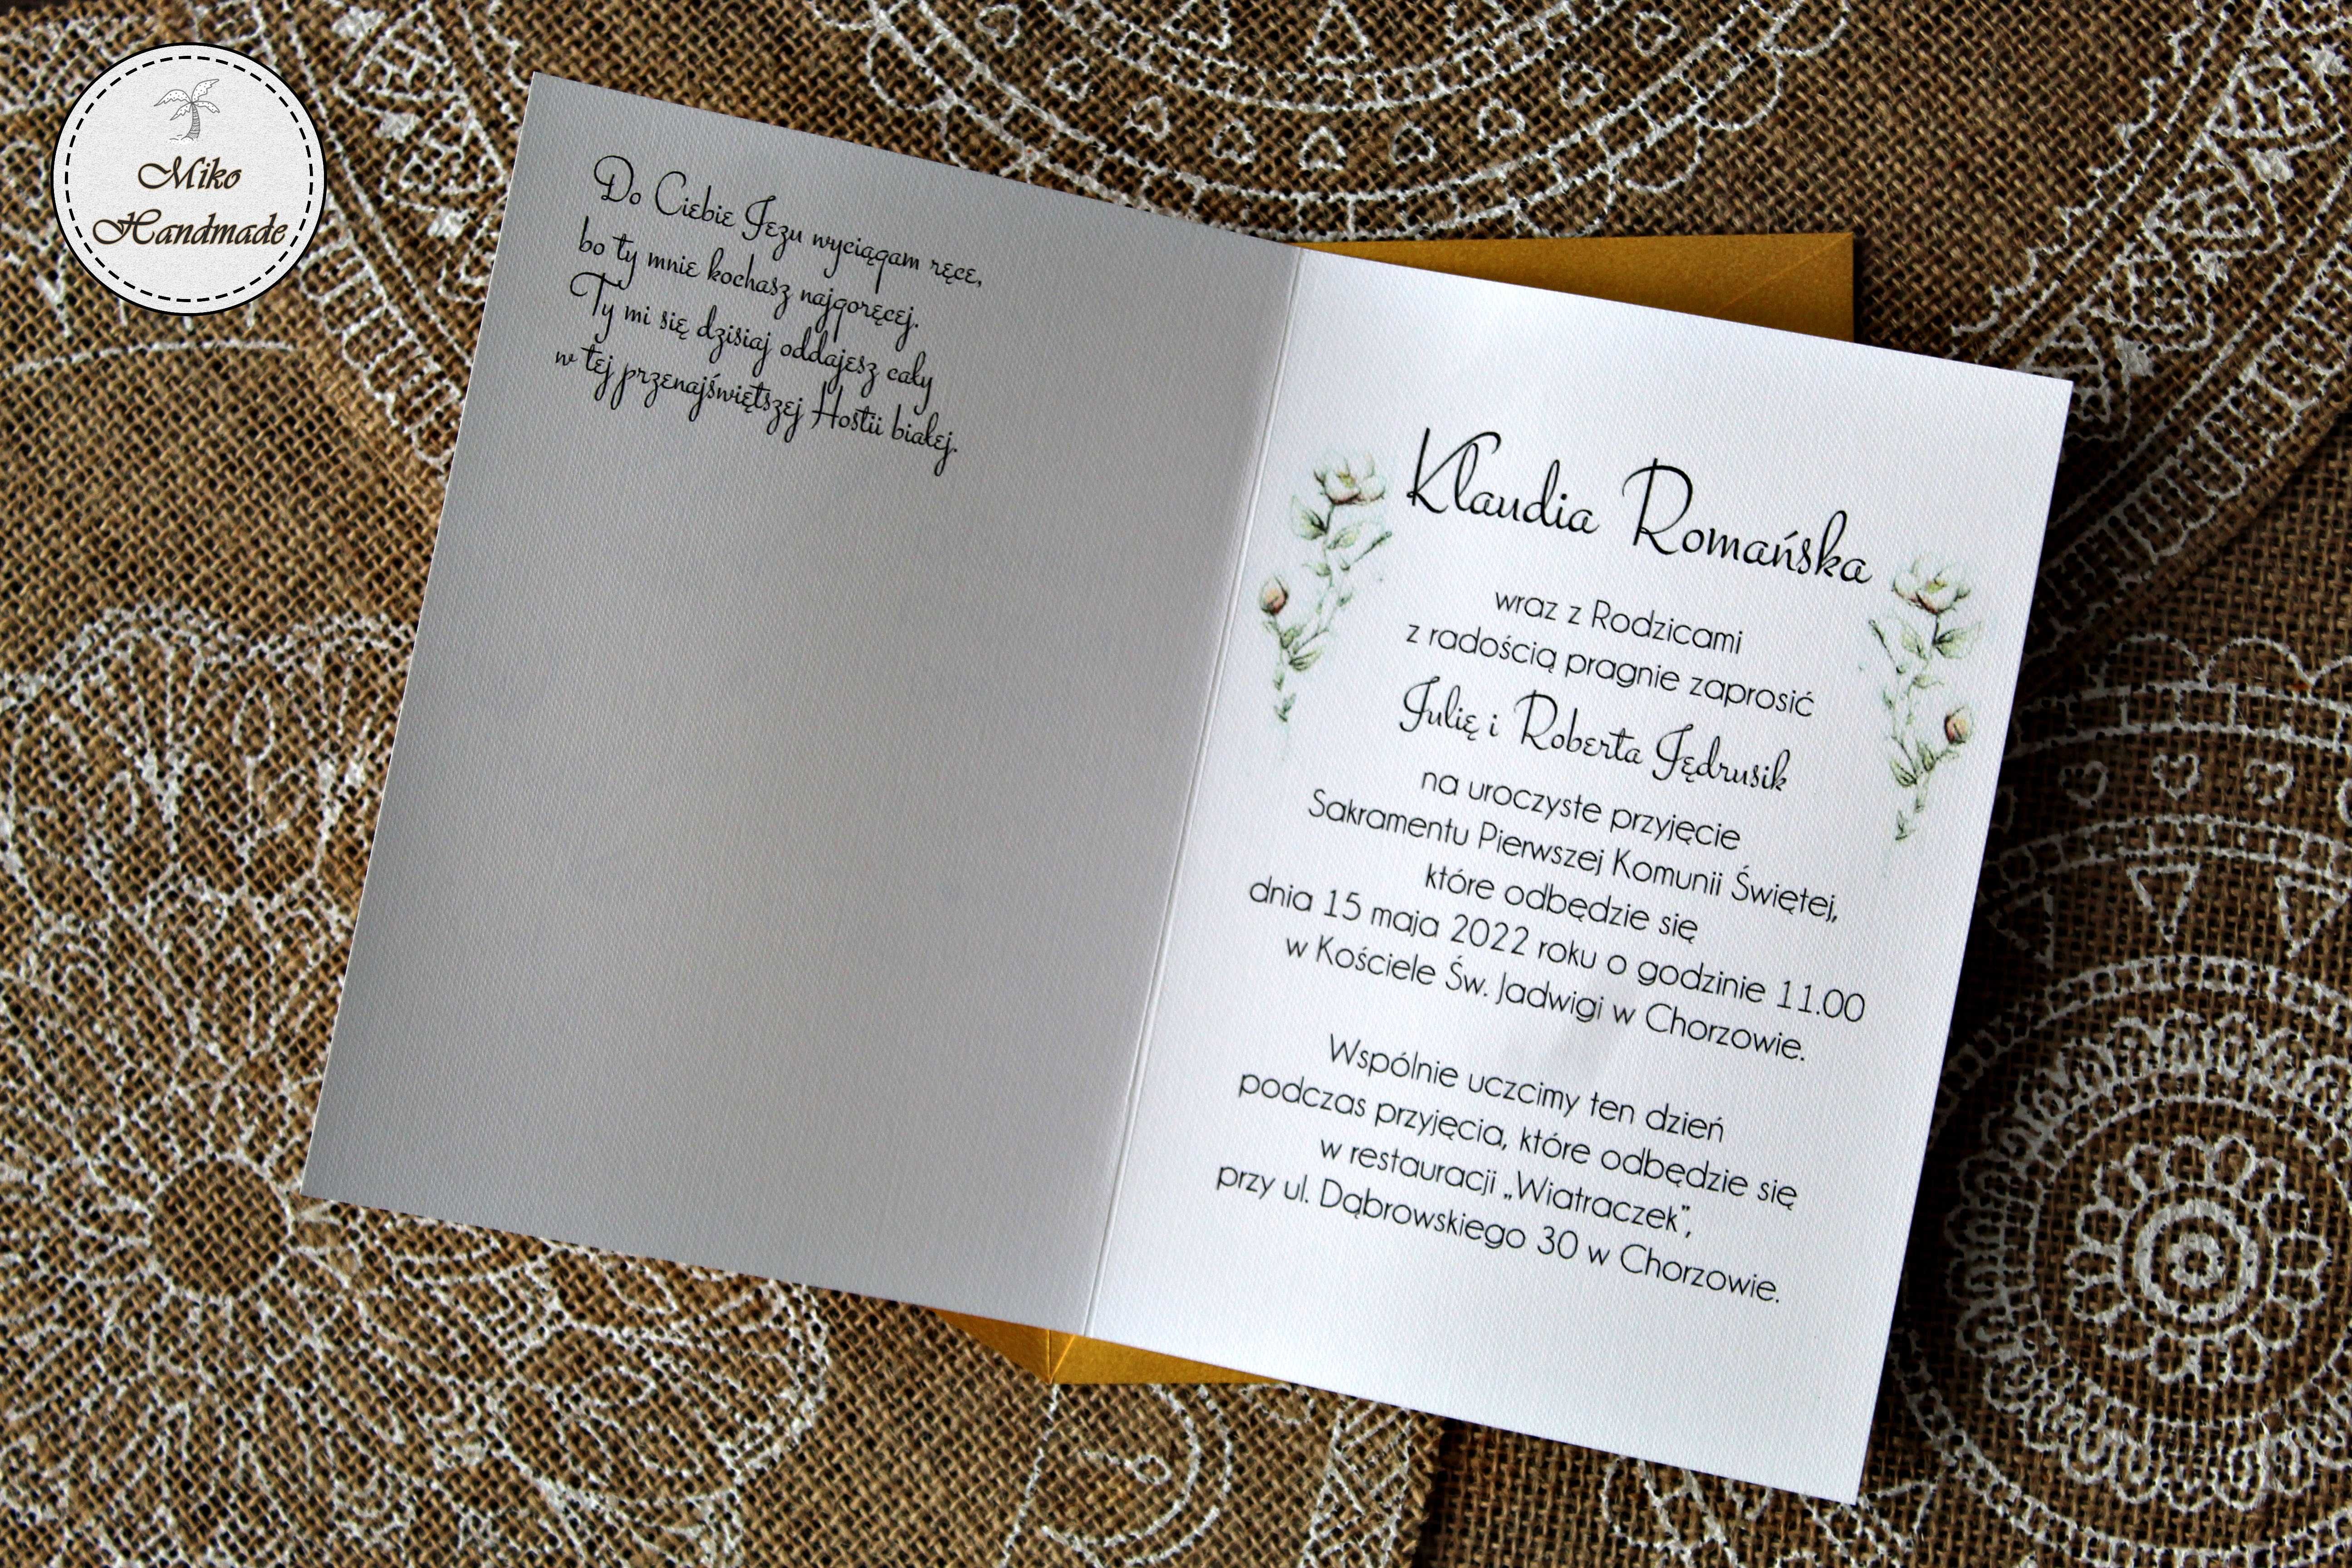 Miko
Handmade
Do Ciebie Jezu wyciągam ręce,
bo ty mnie kochasz najgoręcej.
Ty mi się dzisiaj oddajesz cały
w tej przenajświętszej Hostii białej.
Klaudia Romańska
wraz z Rodzicami
z radością pragnie zaprosić
Julię i Roberta Jędrusik
na uroczyste przyjęcie
Sakramentu Pierwszej Komunii Świętej,
które odbędzie się
dnia 15 maja 2022 roku o godzinie 11.00
w Kościele Św. Jadwigi w Chorzowie.
Wspólnie uczcimy ten dzień
podczas przyjęcia, które odbędzie się
w restauracji „Wiatraczek”,
przy ul. Dąbrowskiego 30 w Chorzowie.